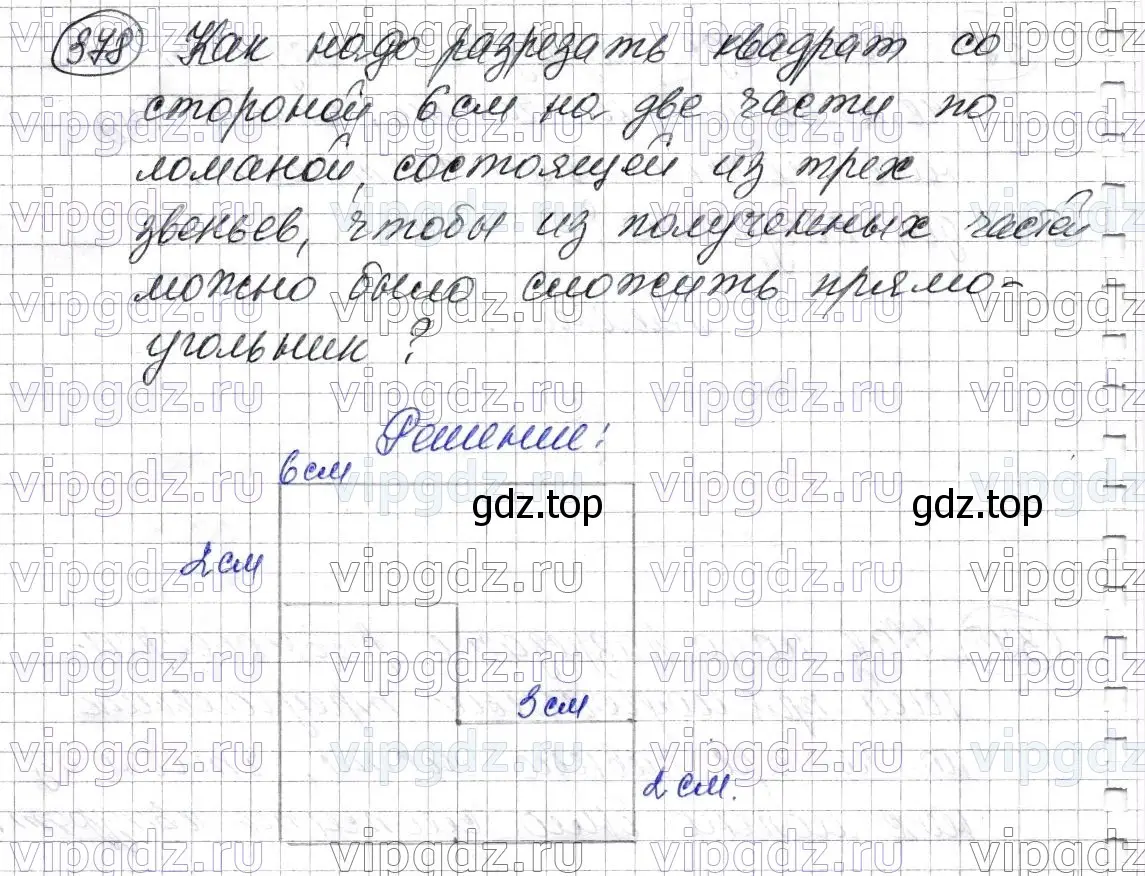 378 Как надо разрезать квадрат со
стороной 6 см на две части по
ломаной, состоящей из трех
звеньев, чтобы из полученных частей
можно было сложить прямо-
угольник?
Решение:
6 см
gdz.top gdz.top
2 см
3 см
2 см.
vipgdz.ru vipgdz.ru vipgdz.ru vipgdz.ru